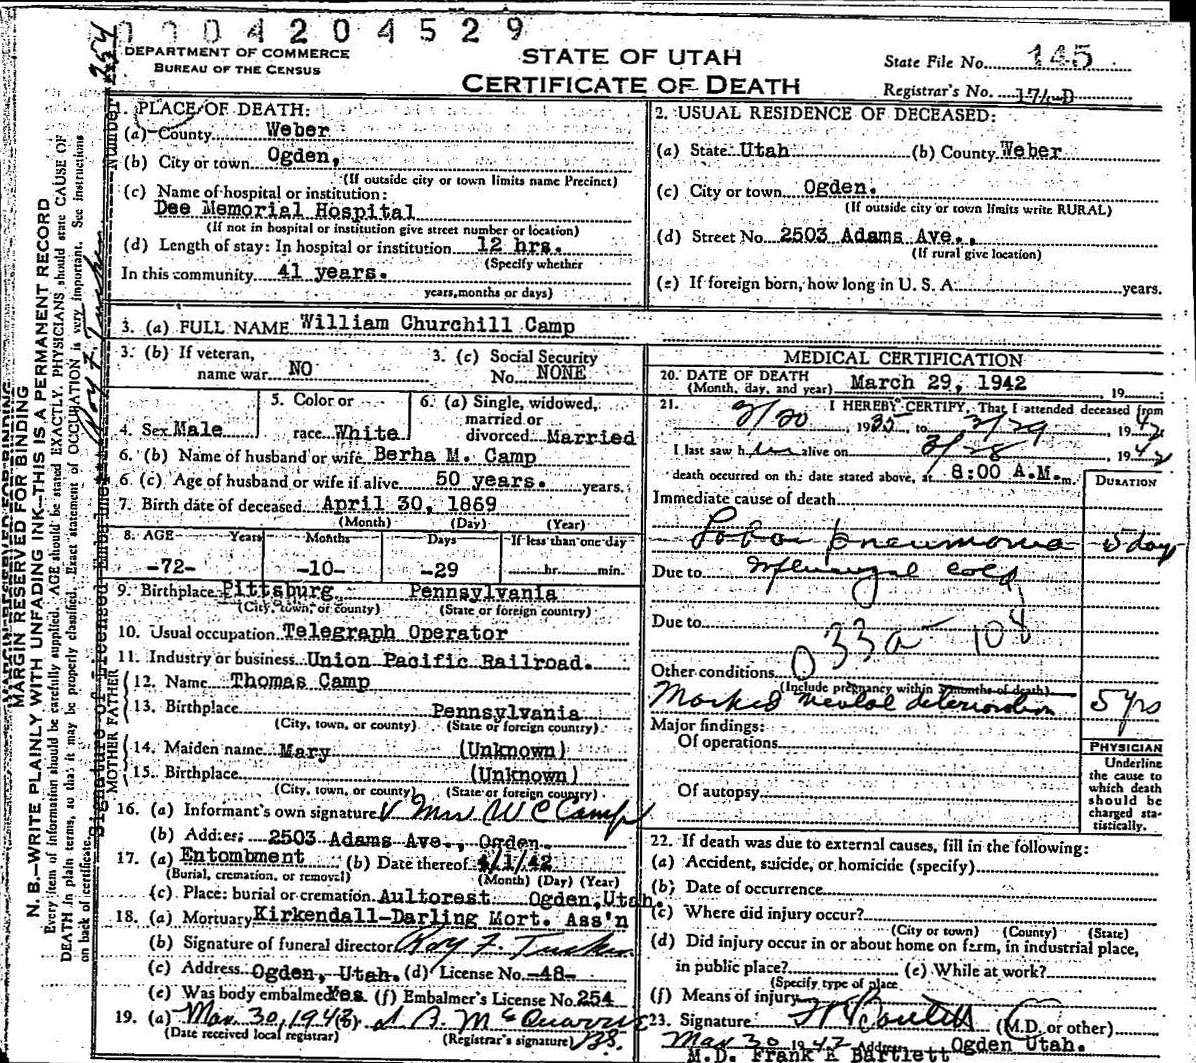 0004204529
DEPARTMENT OF COMMERCE
BUREAU OF THE CENSUS
STATE OF UTAH
CERTIFICATE OF DEATH
State File No. 145
Registrar's No. 17
MARGIN RESERVED FOR BINDING
N. B.—WRITE PLAINLY WITH UNFADING INK—THIS IS A PERMANENT RECORD
Every item of information should be carefully supplied. AGE should be stated EXACTLY. PHYSICIANS should state CAUSE OF
DEATH in plain terms, so that it may be properly classified. Exact statement of OCCUPATION is very important. See instructions
on back of certificate.
Signature of Licensed Embalmer Roy F. Tucker Number 254
1. PLACE OF DEATH:
(a) County Weber
(b) City or town Ogden,
(If outside city or town limits name Precinct)
(c) Name of hospital or institution:
Dee Memorial Hospital
(If not in hospital or institution give street number or location)
(d) Length of stay: In hospital or institution 12 hrs.
(Specify whether
In this community 41 years.
years, months or days)
2. USUAL RESIDENCE OF DECEASED:
(a) State Utah (b) County Weber
(c) City or town Ogden.
(If outside city or town limits write RURAL)
(d) Street No. 2503 Adams Ave.,
(If rural give location)
(e) If foreign born, how long in U. S. A. years.
3. (a) FULL NAME William Churchill Camp
3. (b) If veteran, name war NO
3. (c) Social Security No. NONE
4. Sex Male
5. Color or race White
6. (a) Single, widowed, married or divorced Married
6. (b) Name of husband or wife Berha M. Camp
6. (c) Age of husband or wife if alive 50 years. years.
7. Birth date of deceased April 30, 1869
(Month) (Day) (Year)
8. AGE Years Months Days If less than one day
-72- -10- -29 hr. min.
9. Birthplace Pittsburg Pennsylvania
(City, town, or county) (State or foreign country)
10. Usual occupation Telegraph Operator
11. Industry or business Union Pacific Railroad.
FATHER
12. Name Thomas Camp
13. Birthplace Pennsylvania
(City, town, or county) (State or foreign country)
MOTHER
14. Maiden name Mary (Unknown)
15. Birthplace (Unknown)
(City, town, or county) (State or foreign country)
16. (a) Informant's own signature Mrs W C Camp
(b) Address 2503 Adams Ave., Ogden
17. (a) Entombment (b) Date thereof 4/1/42
(Burial, cremation, or removal) (Month) (Day) (Year)
(c) Place: burial or cremation Aultorest Ogden, Utah.
18. (a) Mortuary Kirkendall-Darling Mort. Ass'n
(b) Signature of funeral director Roy F. Tucker
(c) Address Ogden, Utah. (d) License No. -48-
(e) Was body embalmed Yes (f) Embalmer's License No. 254
19. (a) Mar 30, 1942 (b)
(Date received local registrar) (Registrar's signature)
MEDICAL CERTIFICATION
20. DATE OF DEATH
(Month, day, and year) March 29, 1942 19
21. I HEREBY CERTIFY, That I attended deceased from
3/20, 1935, to 3/29, 1942
I last saw him alive on 3/28, 1942
death occurred on the date stated above, at 8:00 A.M. m.
DURATION
Immediate cause of death
Lobar pneumonia 5 days
Due to Influenzal cold
Due to
033a 108
Other conditions
(Include pregnancy within 3 months of death)
Marked mental deterioration 5 yrs
Major findings:
Of operations
Of autopsy
PHYSICIAN
Underline
the cause to
which death
should be
charged sta-
tistically.
22. If death was due to external causes, fill in the following:
(a) Accident, suicide, or homicide (specify)
(b) Date of occurrence
(c) Where did injury occur?
(City or town) (County) (State)
(d) Did injury occur in or about home on farm, in industrial place,
in public place? (e) While at work?
(Specify type of place
(f) Means of injury
23. Signature (M.D. or other)
Mar 30 1942 Address Ogden Utah.
M.D. Frank K Bartlett